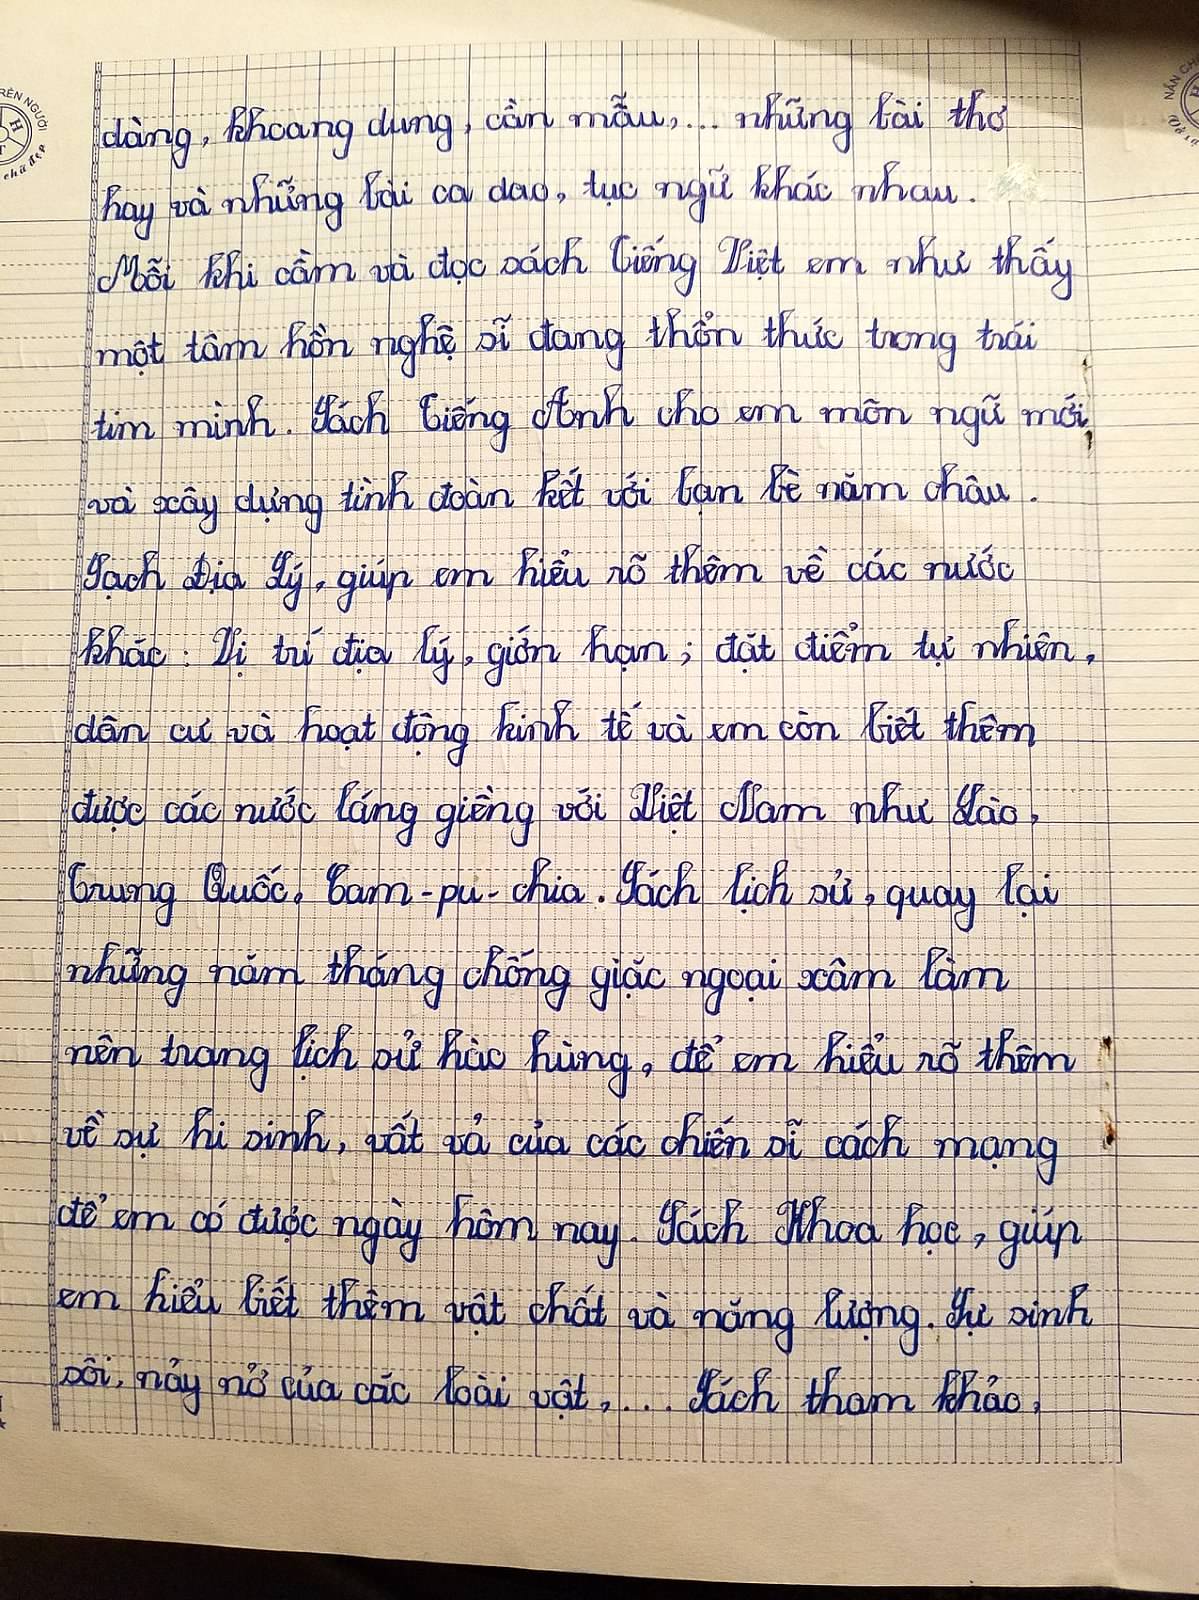 RÈN NGƯỜI
chữ đẹp
NẮN CH
dàng, khoang dung, cần mẫu,... những bài thơ
hay và những bài ca dao, tục ngữ khác nhau.
Mỗi khi cầm và đọc sách Tiếng Việt em như thấy
một tâm hồn nghệ sĩ đang thổn thức trong trái
tim mình. Sách Tiếng Anh cho em môn ngữ mới
và xây dựng tình đoàn kết với bạn bè năm châu.
Sạch Địa Lý, giúp em hiểu rõ thêm về các nước
khác: Vị trí địa lý, giớn hạn; đặt điểm tự nhiên,
dân cư và hoạt động kinh tế và em còn biết thêm
được các nước láng giềng với Việt Nam như Lào,
Trung Quốc, Cam-pu-chia. Sách lịch sử, quay lại
những năm tháng chống giặc ngoại xâm làm
nên trang lịch sử hào hùng, để em hiểu rõ thêm
về sự hi sinh, vất vả của các chiến sĩ cách mạng
để em có được ngày hôm nay. Sách Khoa học, giúp
em hiểu biết thêm vật chất và năng lượng. Sự sinh
sôi, nảy nở của các loài vật,... Sách tham khảo,